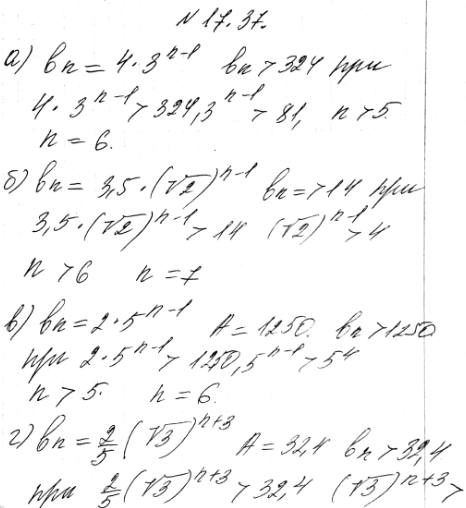 № 17.37.
а) bₙ = 4·3ⁿ⁻¹ bₙ > 324 при
4·3ⁿ⁻¹ > 324, 3ⁿ⁻¹ > 81, n > 5.
n = 6.
б) bₙ = 3,5·(√2)ⁿ⁻¹ bₙ => 14 при
3,5·(√2)ⁿ⁻¹ > 14 (√2)ⁿ⁻¹ > 4
n > 6 n = 7
в) bₙ = 2·5ⁿ⁻¹ A = 1250. bₙ > 1250
при 2·5ⁿ⁻¹ > 1250, 5ⁿ⁻¹ > 5⁴
n > 5. n = 6.
г) bₙ = 2/5 (√3)ⁿ⁺³ A = 32,4 bₙ > 32,4
при 2/5 (√3)ⁿ⁺³ > 32,4 (√3)ⁿ⁺³ >